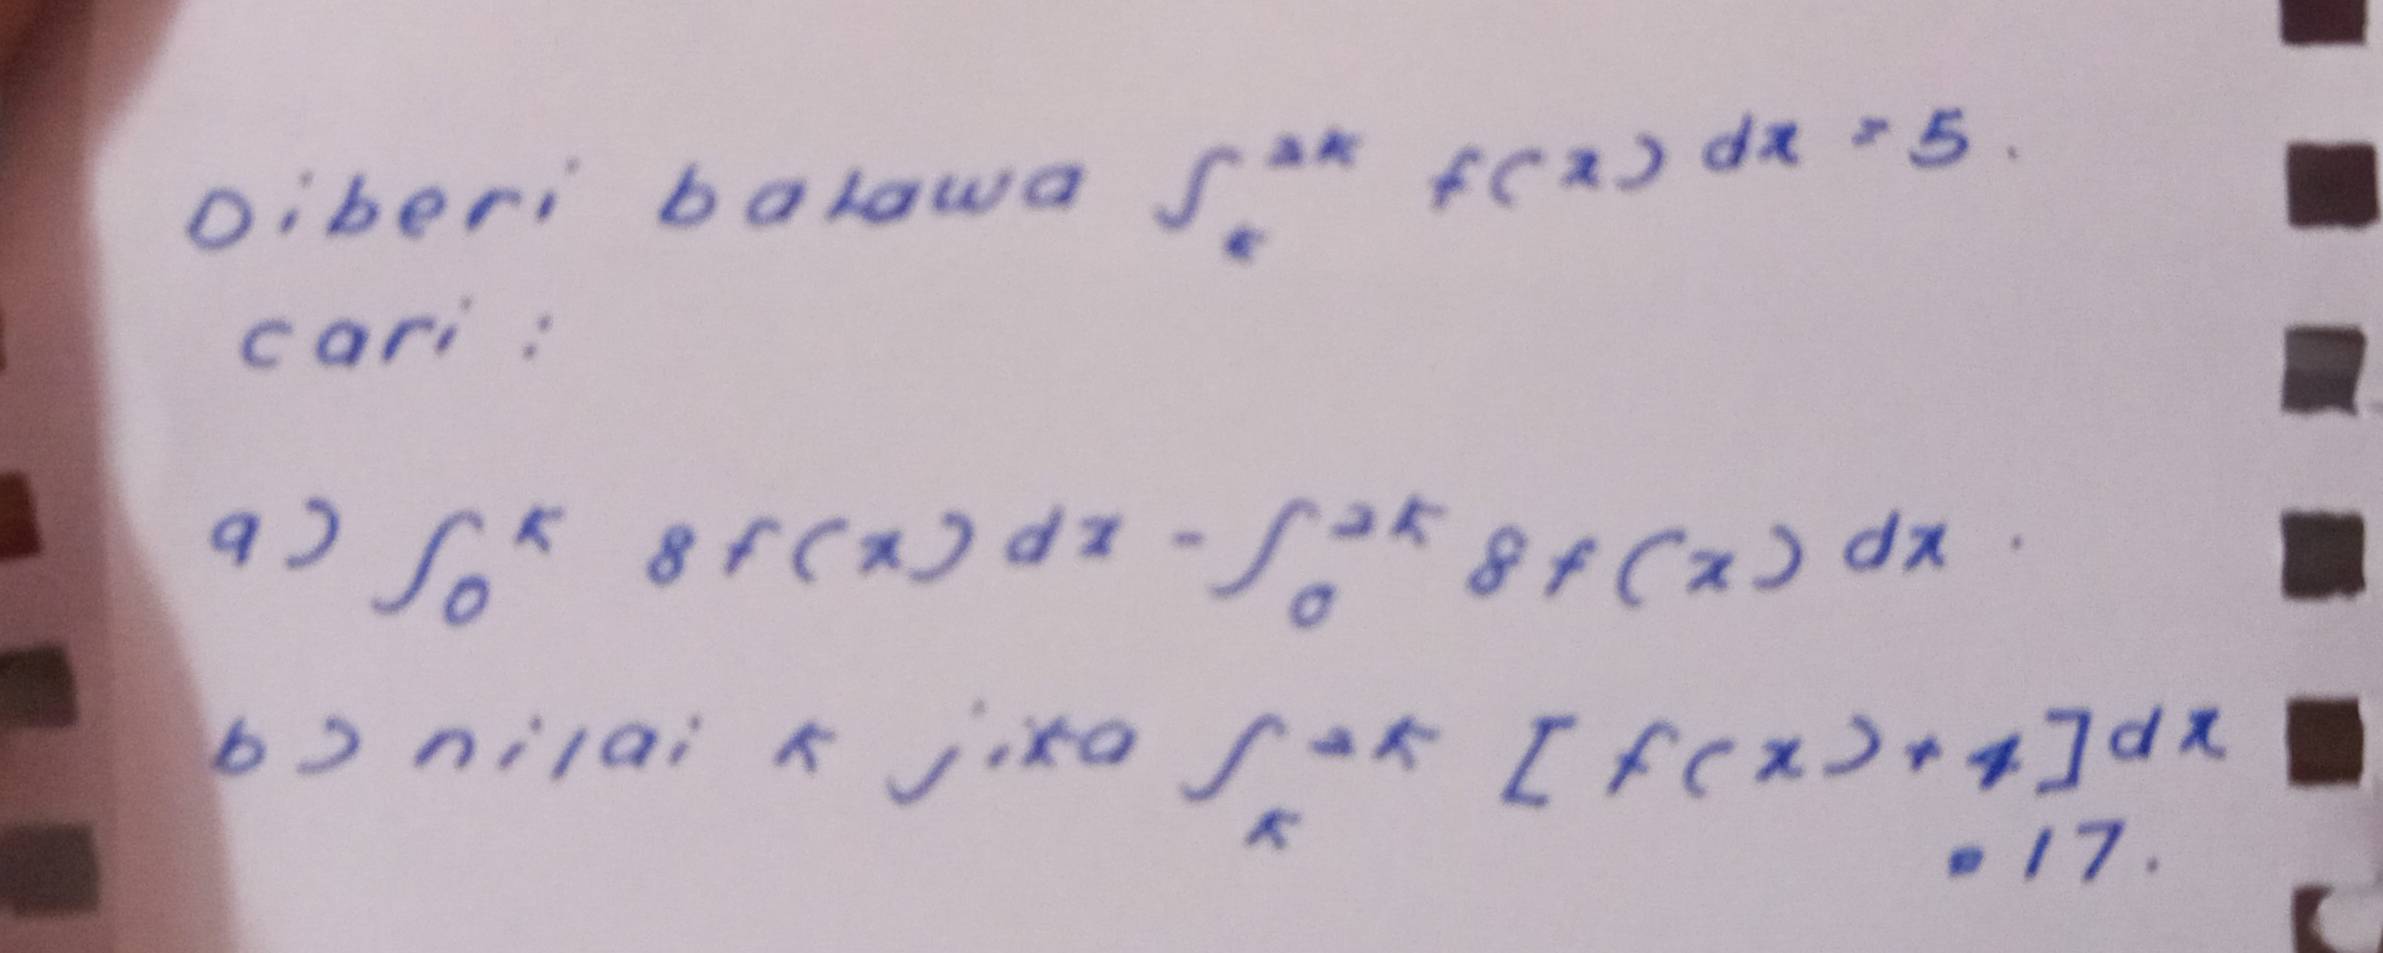 Diberi bahawa ∫ₖ²ᵏ f(x) dx = 5.
cari :
a) ∫₀ᵏ 8f(x) dx - ∫₀²ᵏ 8f(x) dx.
b) nilai k jika ∫ₖ²ᵏ [f(x) + 4] dx
= 17.